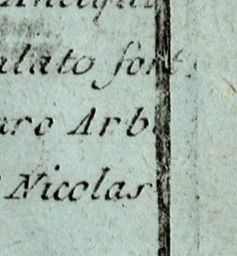 alato fort
are Arb
Nicolas